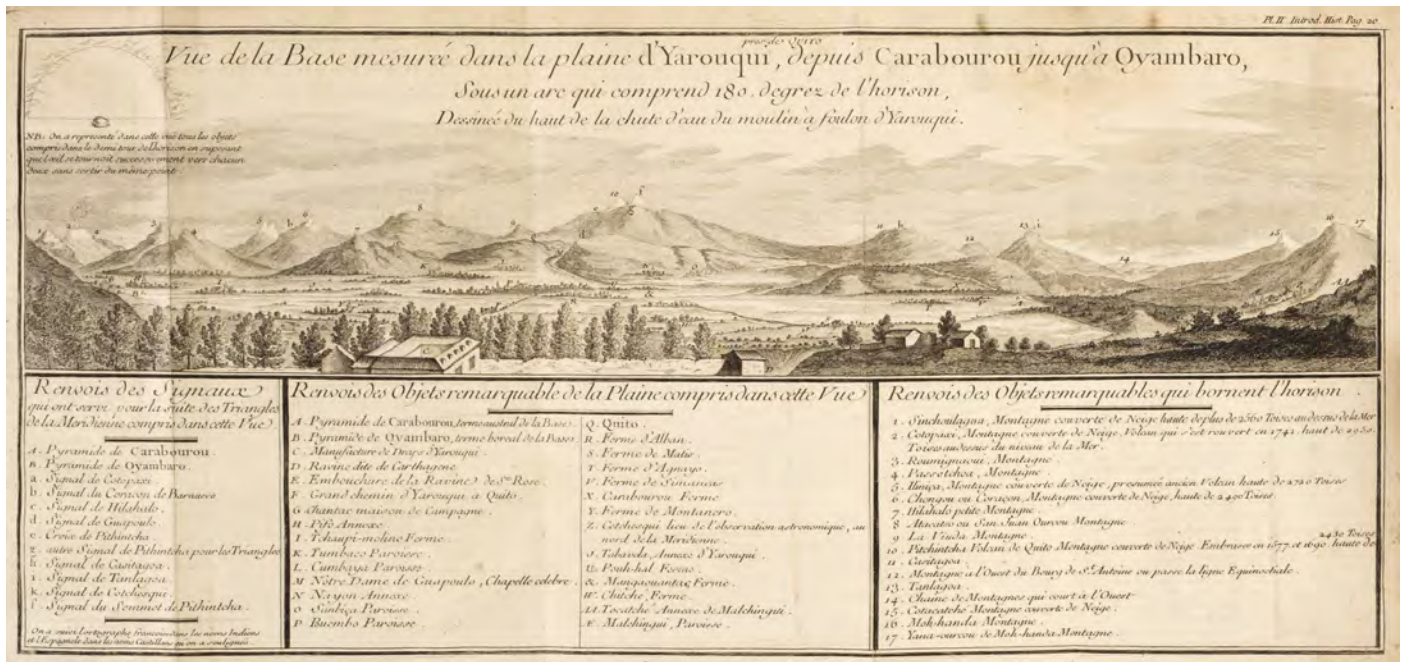 Pl. II. Introd. Hist. Pag. 20
près de QUITO
Vue de la Base mesurée dans la plaine d'Yarouqui, depuis Carabourou jusqu'à Oyambaro,
Sous un arc qui comprend 180. degrez de l'horison,
Dessinée du haut de la chute d'eau du moulin à foulon d'Yarouqui.
NB. On a representé dans cette vuë tous les objets
compris dans le demi tour de l'horison en suposant
que l'œil se tournoit successivement vers chacun
deux sans sortir du même point.
Renvois des Signaux
qui ont servi pour la suite des Triangles
de la Meridienne compris dans cette Vue
A. Pyramide de Carabourou.
B. Pyramide de Oyambaro.
a. Signal de Cotopaxi
b. Signal du Coraçon de Barnuevo
c. Signal de Hilahalo.
d. Signal de Guapoulo
e. Croix de Pithintcha.
2. autre Signal de Pithintcha pour les Triangles
h. Signal de Casitagoa.
i. Signal de Tanlagoa.
k. Signal de Cotchesqui.
f. Signal du Sommet de Pithintcha.
On a suivi l'ortographe françoise dans les noms Indiens
et l'Espagnole dans les noms Castillans qu'on a soulignés
Renvois des Objets remarquable de la Plaine compris dans cette Vue
A. Pyramide de Carabourou, terme austral de la Base.
B. Pyramide de Oyambaro, terme boreal de la Base.
C. Manufacture de Draps d'Yarouqui.
D. Ravine dite de Carthagene
E. Embouchure de la Ravine de Ste. Rose.
F. Grand chemin d'Yarouqui a Quito.
G. Chantar maison de Campagne.
H. Pifo Annexe.
I. Tchaupi-molino Ferme.
K. Tumbaco Paroisse.
L. Cumbaya Paroisse.
M. Nôtre Dame de Guapoulo, Chapelle celebre.
N. Nayon Annexe.
O. Sánbiça Paroisse.
P. Buembo Paroisse.
Q. Quito.
R. Ferme d'Alban.
S. Ferme de Matis.
T. Ferme d'Agnayo.
V. Ferme de Simancas
X. Carabourou Ferme
Y. Ferme de Montanero.
Z. Cotchesqui lieu de l'observation astronomique, au
nord de la Meridienne.
J. Tababela, Annexe d'Yarouqui.
U. Pouh-hal Ferme.
&. Mangaouantag Ferme.
W. Chitché, Ferme.
AA. Tocatché Annexe de Malchingui.
Æ. Malchingui, Paroisse.
Renvois des Objets remarquables qui bornent l'horison.
1. Sinchoulagoa, Montagne couverte de Neige haute de plus de 2560 Toises au dessus de la Mer
2. Cotopaxi, Montagne couverte de Neige, Volcan qui s'est rouvert en 1742. haut de 2950.
Toises au dessus du niveau de la Mer.
3. Roumignaoui, Montagne.
4. Passotchoa, Montagne.
5. Iliniça, Montagne couverte de Neige, presumée ancien Volcan haute de 2720 Toises
6. Chongou ou Coraçon, Montagne couverte de Neige, haute de 2400 Toises.
7. Hilahalo petite Montagne.
8. Atacatso ou San Juan Ourcou Montagne.
9. La Viuda Montagne.
10. Pitchintcha Volcan de Quito Montagne couverte de Neige. Embrasée en 1577. et 1690. haute de 2430 Toises
11. Casitagoa.
12. Montagne a l'Ouest du Bourg de St. Antoine ou passe la ligne Equinoctiale.
13. Tanlagoa
14. Chaine de Montagnes qui court à l'Ouest
15. Cotacatché Montagne couverte de Neige.
16. Moh-handa Montagne.
17. Yana-ourcou de Moh-handa Montagne.